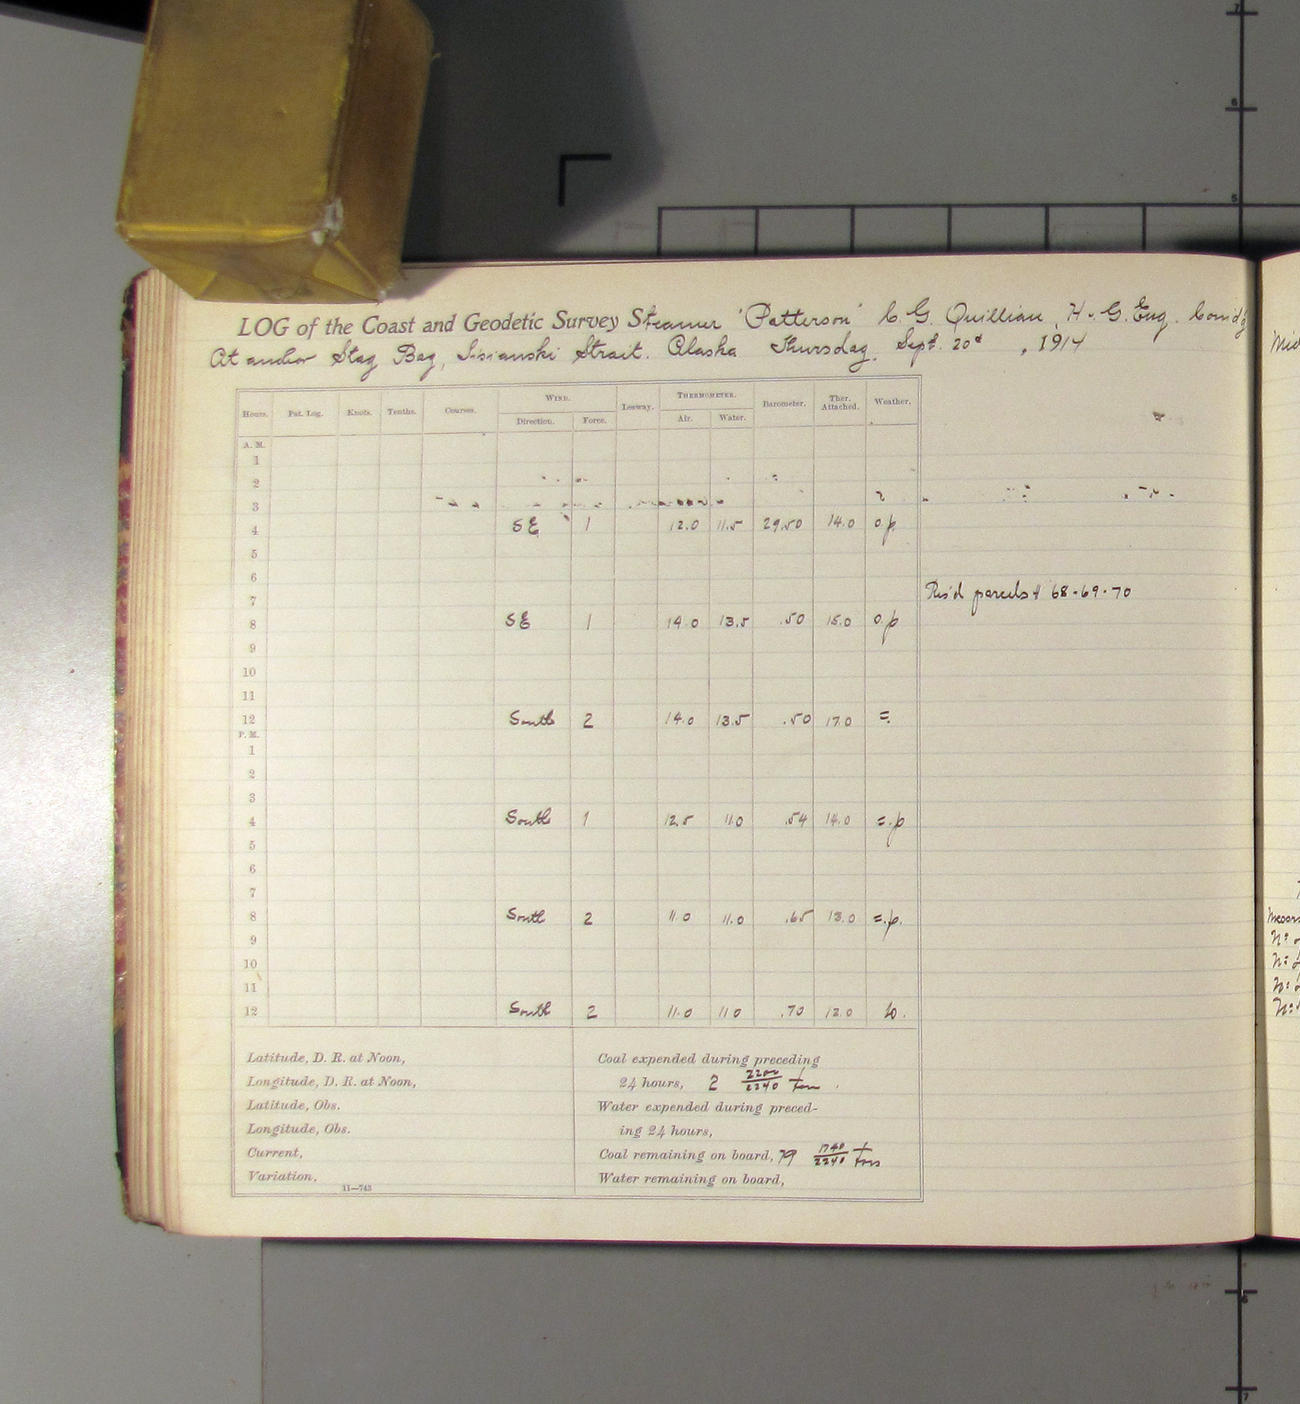 LOG of the Coast and Geodetic Survey Steamer 'Patterson' C. G. Quillian, H. & G. Eng. Com'd'g
At anchor Stag Bay, Lisianski Strait. Alaska Thursday, Sept. 20th, 1914
Hours. Pat. Log. Knots. Tenths. Courses. WIND. Leeway. THERMOMETER. Barometer. Ther. Attached. Weather.
Direction. Force. Air. Water.
A. M.
1
2
3
4 SE 1 12.0 11.5 29.50 14.0 o.p.
5
6
7 Rec'd parcels # 68-69-70
8 SE 1 14.0 13.5 .50 15.0 o.p
9
10
11
12 South 2 14.0 13.5 .50 17.0 =.
P. M.
1
2
3
4 South 1 12.5 11.0 .54 14.0 =.p
5
6
7
8 South 2 11.0 11.0 .65 13.0 =.p.
9
10
11
12 South 2 11.0 11.0 .70 12.0
Latitude, D. R. at Noon,
Longitude, D. R. at Noon,
Latitude, Obs.
Longitude, Obs.
Current,
Variation,
11—743
Coal expended during preceding
24 hours, 2 2200/2240 ton.
Water expended during preced-
ing 24 hours,
Coal remaining on board, 79 1740/2240 tons
Water remaining on board,